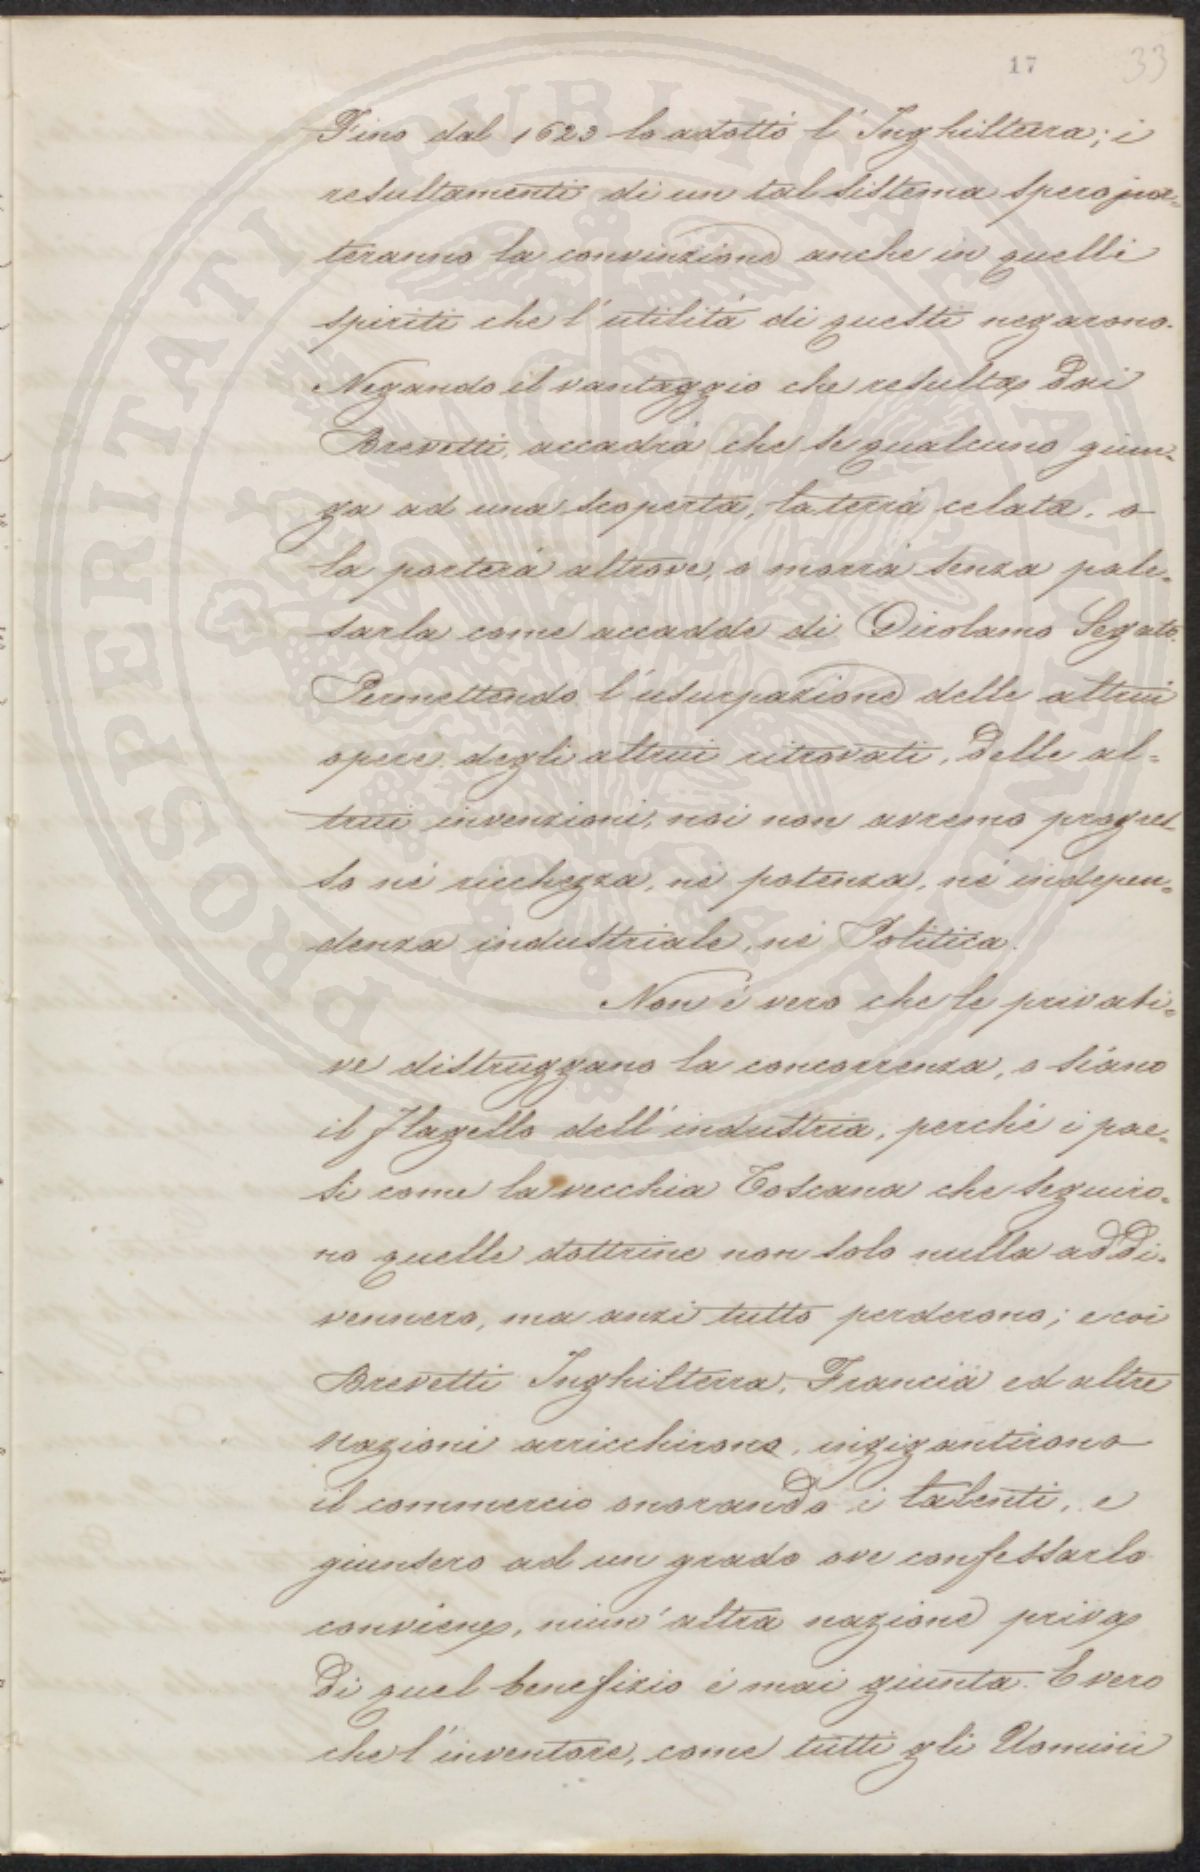 17 33
Fino dal 1623 lo adottò l'Inghilterra; i
resultamenti di un tal sistema spero por=
teranno la convinzione anche in quelli
spiriti che l'utilità di questi negarono.
Negando il vantaggio che resulta dai
Brevetti, accadrà che se qualcuno giun=
ga ad una scoperta, la terrà celata, o
la porterà altrove, o morrà senza pale=
sarla come accadde di Girolamo Segato.
Permettendo l'usurpazione delle altrui
opere, degli altrui ritrovati, delle al=
trui invenzioni, noi non avremo progres
so nè ricchezza, nè potenza, nè indepen=
denza industriale, nè Politica.
Non è vero che le privati=
ve distruggano la concorrenza, o siano
il flagello dell'industria, perchè i pae=
si come la vecchia Toscana che seguiro=
no quelle dottrine non solo nulla addi=
vennero, ma anzi tutto perderono; e coi
Brevetti Inghilterra, Francia ed altre
Nazioni arricchirono, ingigantirono
il commercio onorando i talenti, e
giunsero ad un grado ove confessarlo
conviene, niun'altra nazione priva
di quel benefizio è mai giunta. E vero
che l'inventore, come tutti gli Uomini
PROSPERITATI PVBLICAE AVGENDAE